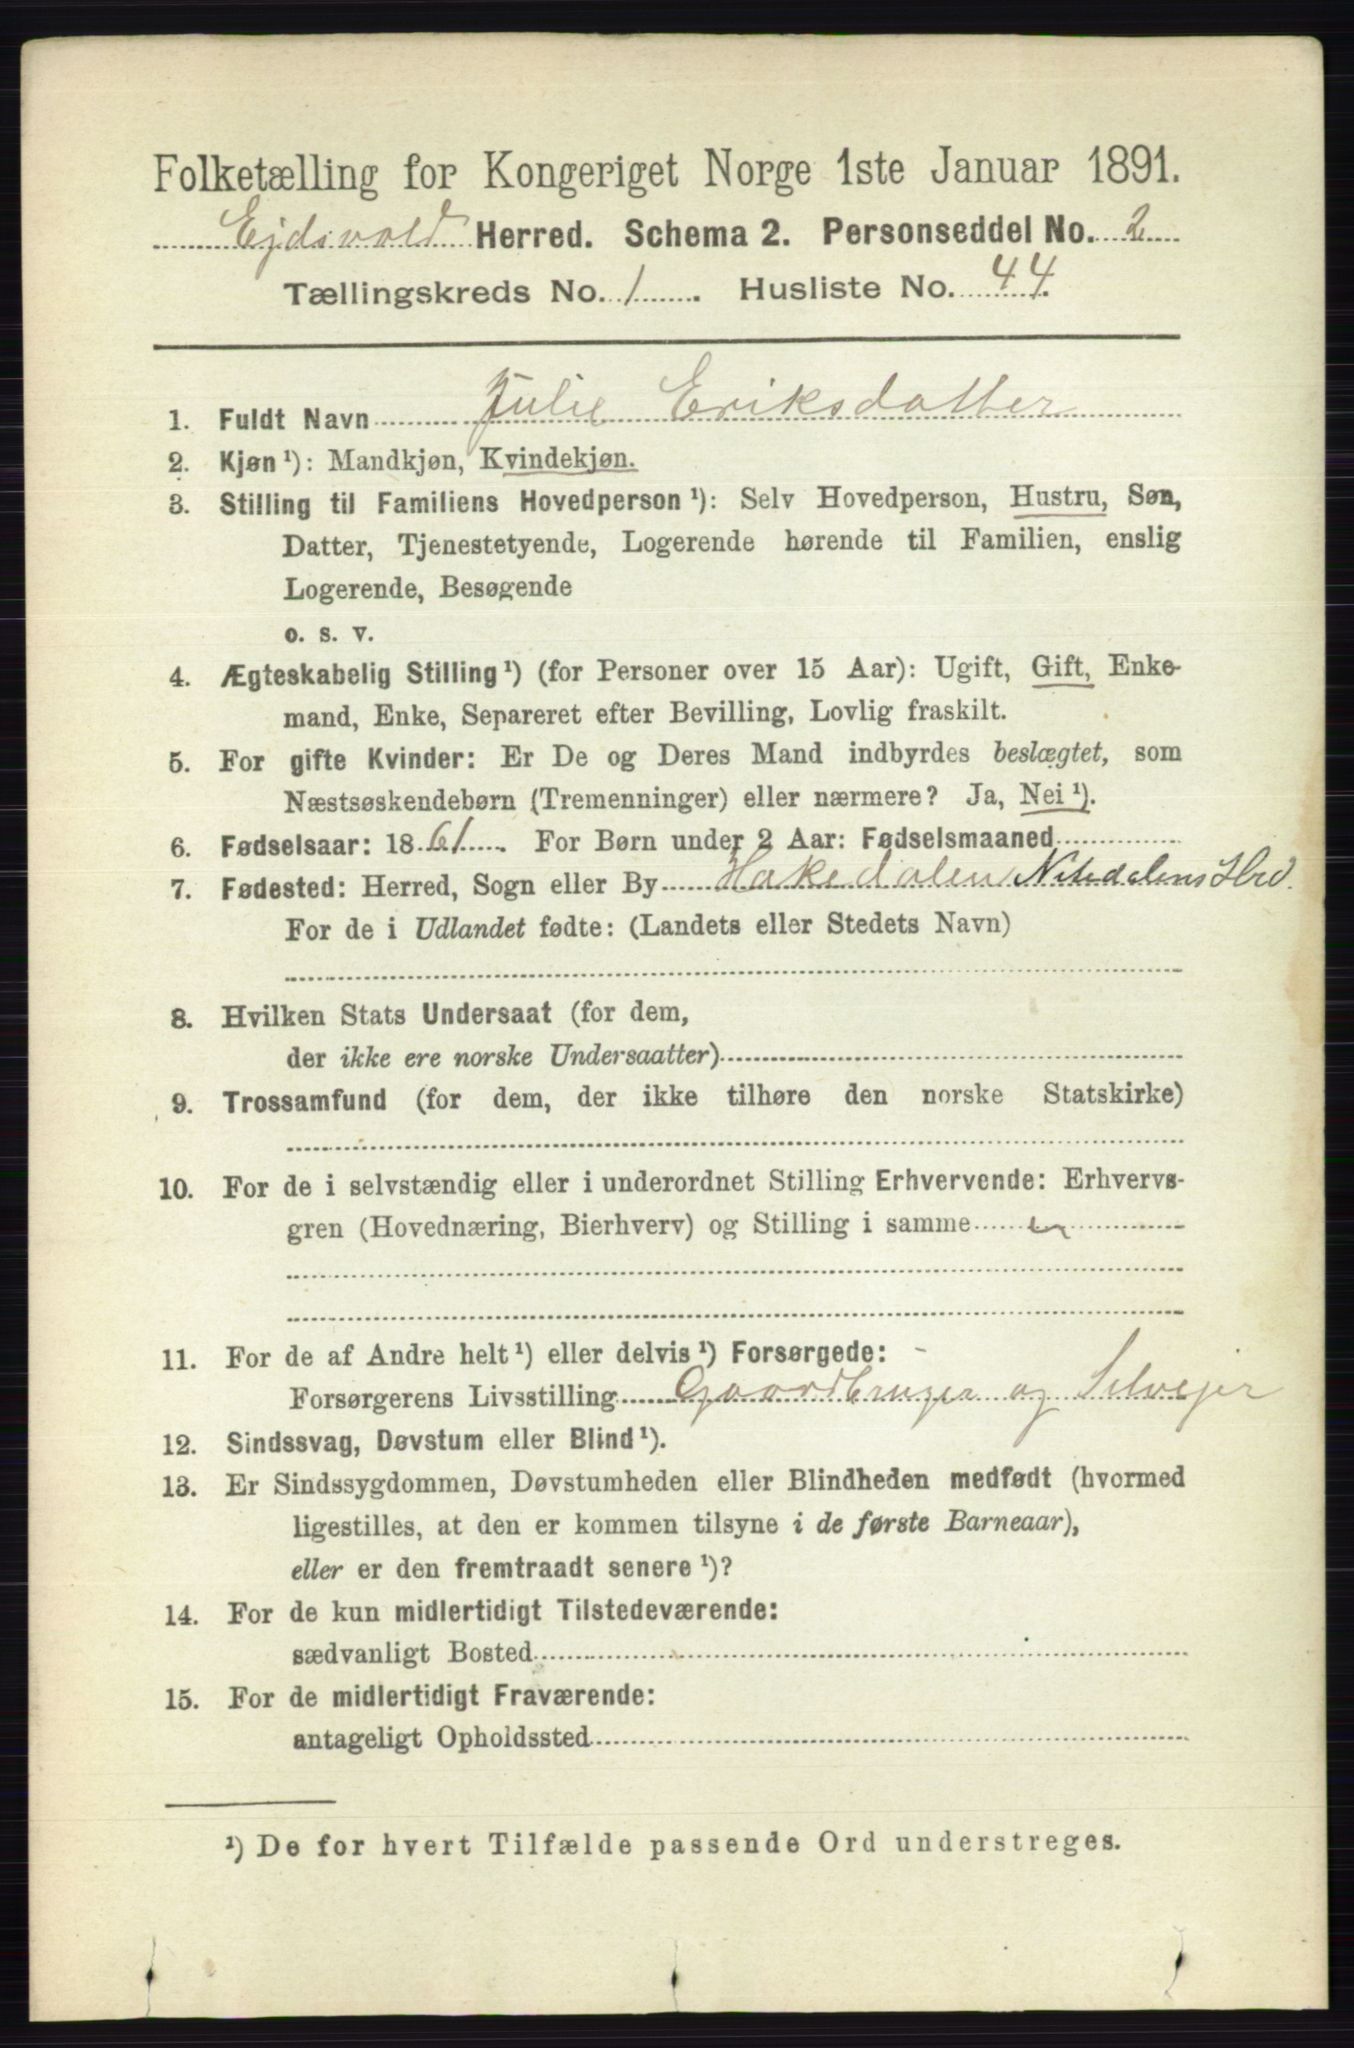 Folketælling for Kongeriget Norge 1ste Januar 1891.
Ejdsvold Herred. Schema 2. Personseddel No. 2
Tællingskreds No. 1. Husliste No. 44.
1. Fuldt Navn Julie Eriksdatter
2. Kjøn ¹): Mandkjøn, Kvindekjøn.
3. Stilling til Familiens Hovedperson ¹): Selv Hovedperson, Hustru, Søn,
Datter, Tjenestetyende, Logerende hørende til Familien, enslig
Logerende, Besøgende
o. s. v.
4. Ægteskabelig Stilling ¹) (for Personer over 15 Aar): Ugift, Gift, Enke-
mand, Enke, Separeret efter Bevilling, Lovlig fraskilt.
5. For gifte Kvinder: Er De og Deres Mand indbyrdes beslægtet, som
Næstsøskendebørn (Tremenninger) eller nærmere? Ja, Nei ¹).
6. Fødselsaar: 1861. For Børn under 2 Aar: Fødselsmaaned
7. Fødested: Herred, Sogn eller By Hakedalen Nitedalens Hrd.
For de i Udlandet fødte: (Landets eller Stedets Navn)
8. Hvilken Stats Undersaat (for dem,
der ikke ere norske Undersaatter)
9. Trossamfund (for dem, der ikke tilhøre den norske Statskirke)
10. For de i selvstændig eller i underordnet Stilling Erhvervende: Erhvervs-
gren (Hovednæring, Bierhverv) og Stilling i samme
11. For de af Andre helt ¹) eller delvis ¹) Forsørgede: -
Forsørgerens Livsstilling Gaardbruger og Selvejer
12. Sindssvag, Døvstum eller Blind ¹).
13. Er Sindssygdommen, Døvstumheden eller Blindheden medfødt (hvormed
ligestilles, at den er kommen tilsyne i de første Barneaar),
eller er den fremtraadt senere ¹)?
14. For de kun midlertidigt Tilstedeværende:
sædvanligt Bosted
15. For de midlertidigt Fraværende:
antageligt Opholdssted
¹) De for hvert Tilfælde passende Ord understreges.